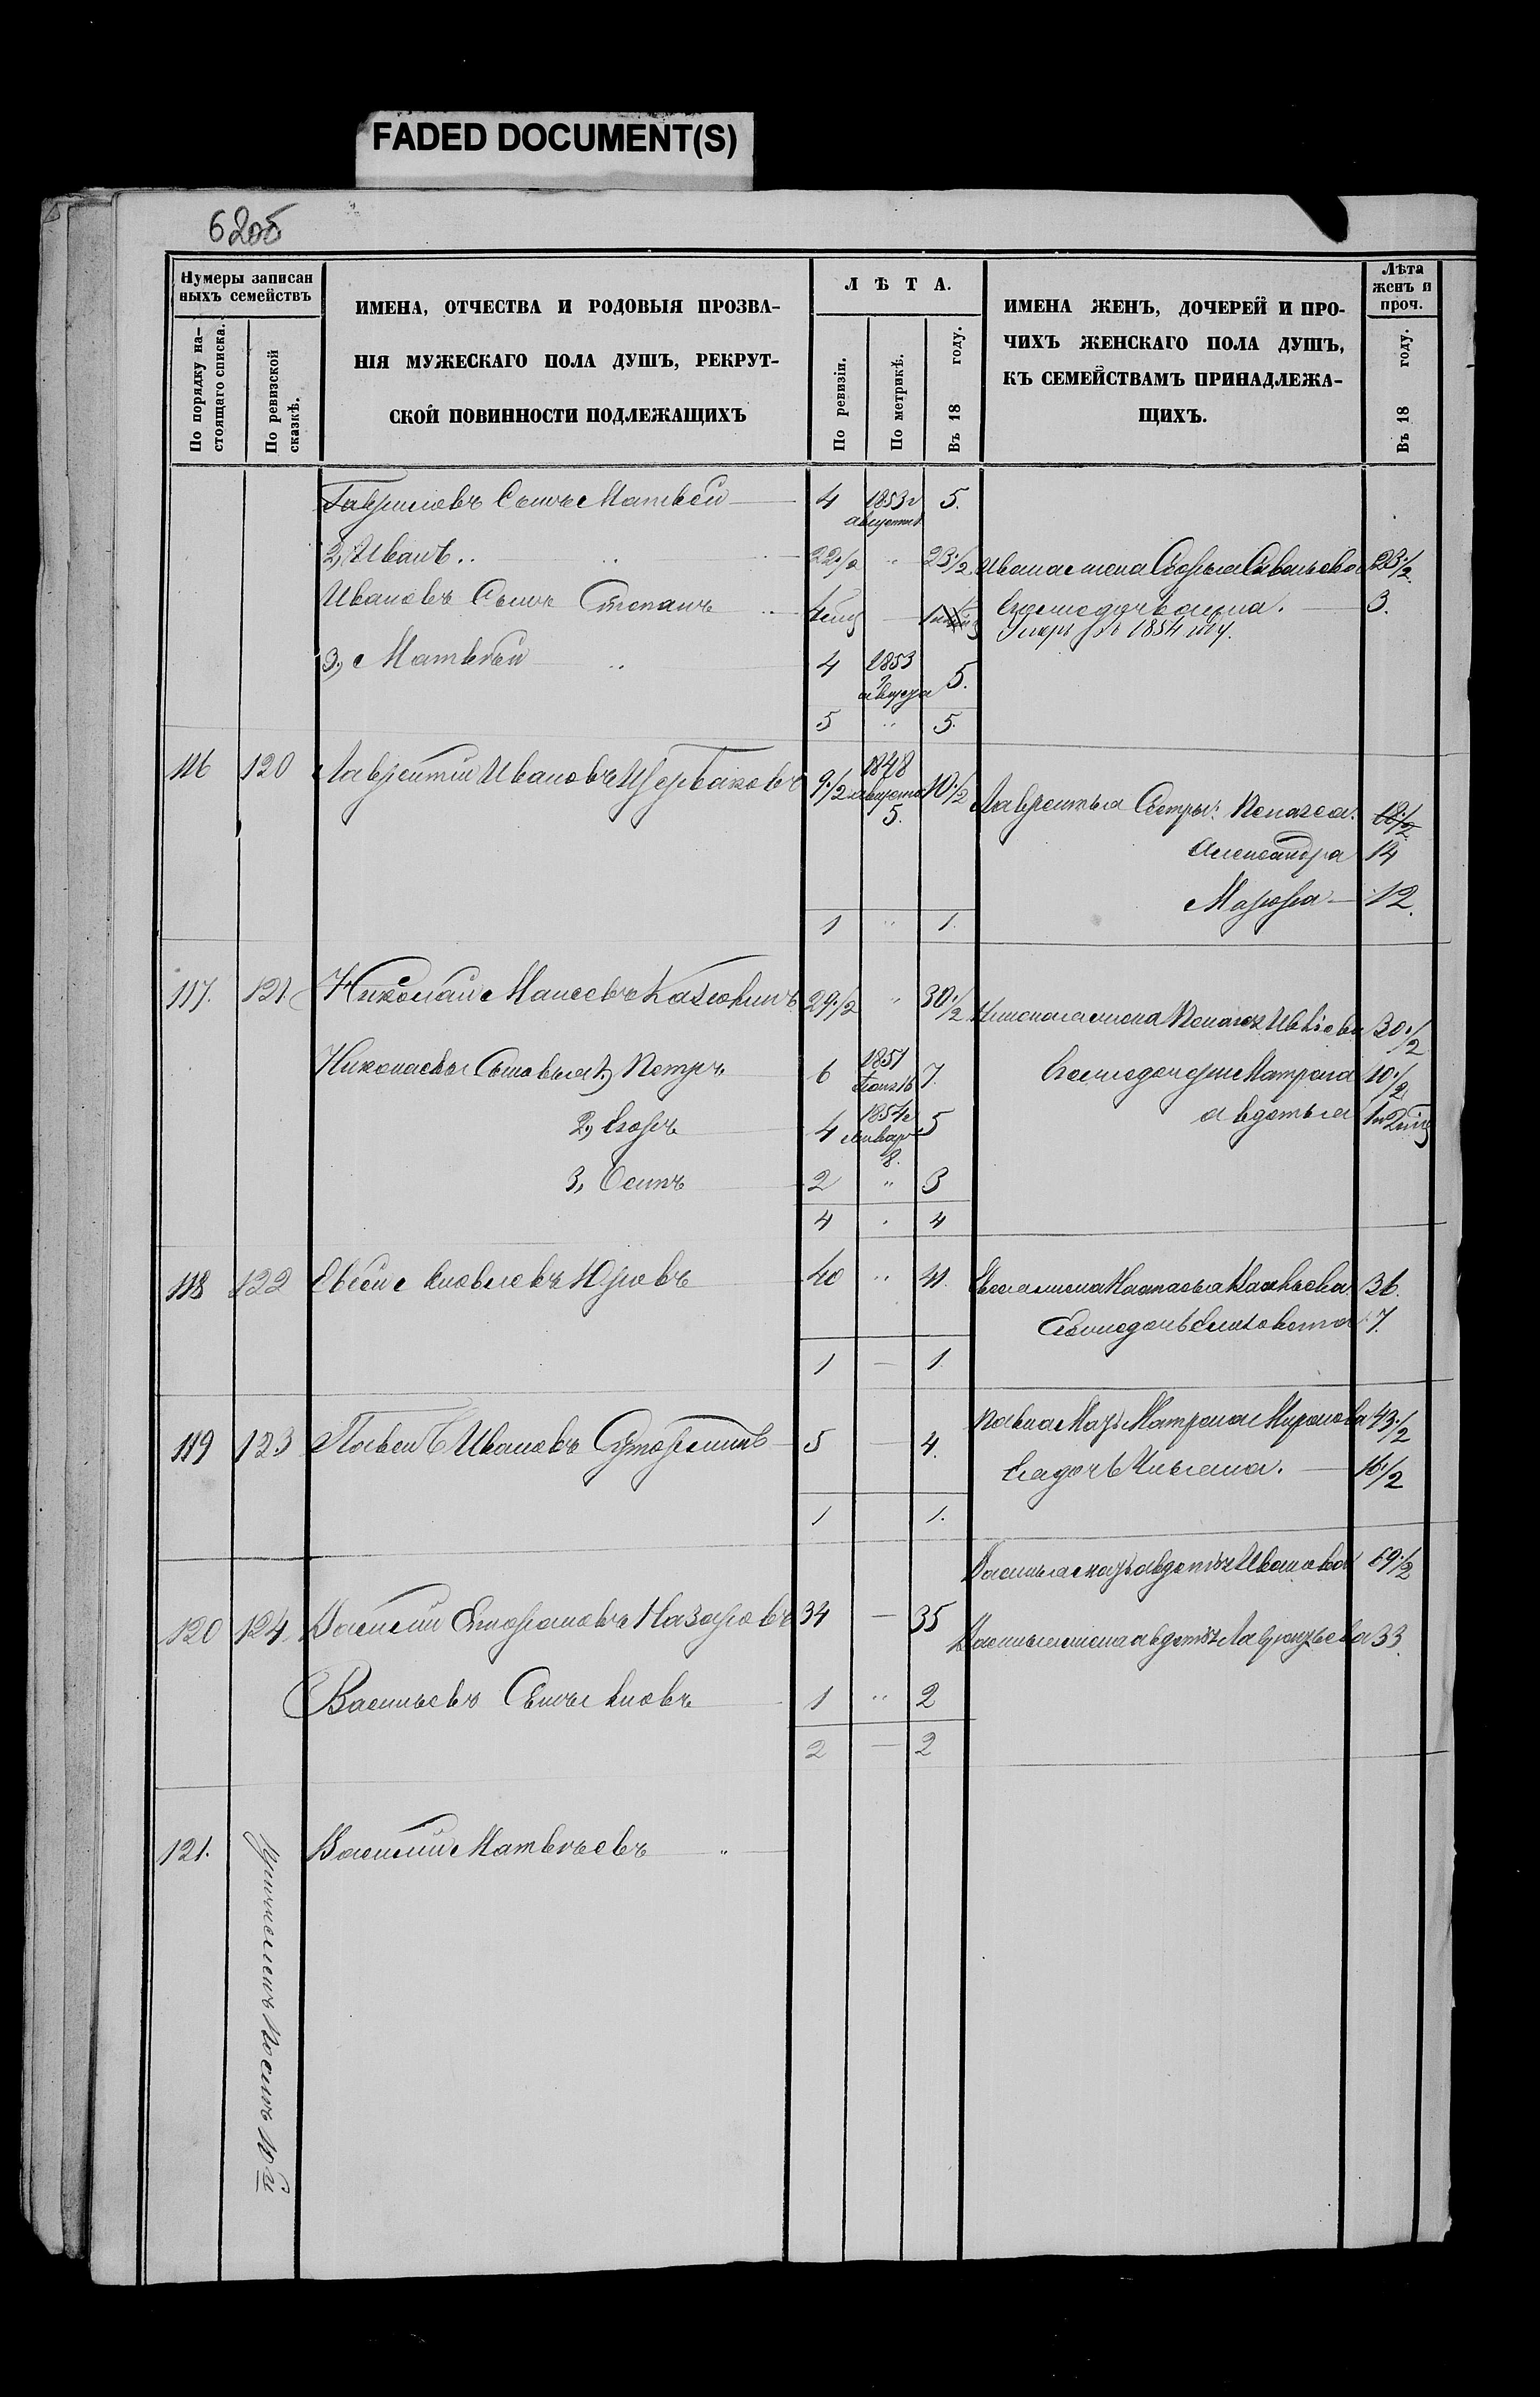 FADED DOCUMENT(S)
62об
Нумеры записан
ныхъ семействъ
По порядку на-
стоящаго списка.
По ревизской
сказкѣ.
ИМЕНА, ОТЧЕСТВА И РОДОВЫЯ ПРОЗВА-
НІЯ МУЖЕСКАГО ПОЛА ДУШЪ, РЕКРУТ-
СКОЙ ПОВИННОСТИ ПОДЛЕЖАЩИХЪ
ЛѢТА.
По ревизіи.
По метрикѣ.
Въ 18 году.
ИМЕНА ЖЕНЪ, ДОЧЕРЕЙ И ПРО-
ЧИХЪ ЖЕНСКАГО ПОЛА ДУШЪ,
КЪ СЕМЕЙСТВАМЪ ПРИНАДЛЕЖА-
ЩИХЪ.
Лѣта
женъ и
проч.
Въ 18 году.
Гавриловъ Сынъ Матвей 4 1853 августа 5.
2, Иванъ 22 1/2 " 23 1/2 Ивана жена 23 1/2
Ивановъ Сынъ Степанъ 3.
Умеръ въ 1854 году.
3, Матвѣй 4 1853 августа 5.
5 " 5.
116 120 Лаврентий Ивановъ Щербаковъ 9 1/2 1848 августа 5. 10 1/2 Лаврентья Сестры: Пелагея: 18 1/2
Александра 14
Мавра 12.
1 " 1.
117. 121. Николай Мансевъ 29 1/2 " 30 1/2 Николая жена Пелагея 30 1/2
Николаевы Сыновья 1, Петръ 6 1851 7. Матрена 10 1/2
2, Егоръ 4 1854 Января 8. 5 авдотья
3, Осипъ 2 " 3
4 . 4
118 122 Евсей Яковлевъ Юровъ 40 " 41. Евсея жена Настасья 36.
дочь Елизавета 7.
1 — 1.
119 123 Павелъ Ивановъ 5 — 4. Павла Мать Матрена Миронова 43 1/2
Ея дочь Ульяна. 16 1/2
1 1.
Василья мать авдотья Иванова 69 1/2
120 124. Василий Назаровъ 34 — 35 Василья жена авдотья Лаврентьева 33.
Васильевъ Сынъ Яковъ 1 " 2
2 — 2
121. Причисленъ После 10 й Василий Матвѣевъ "